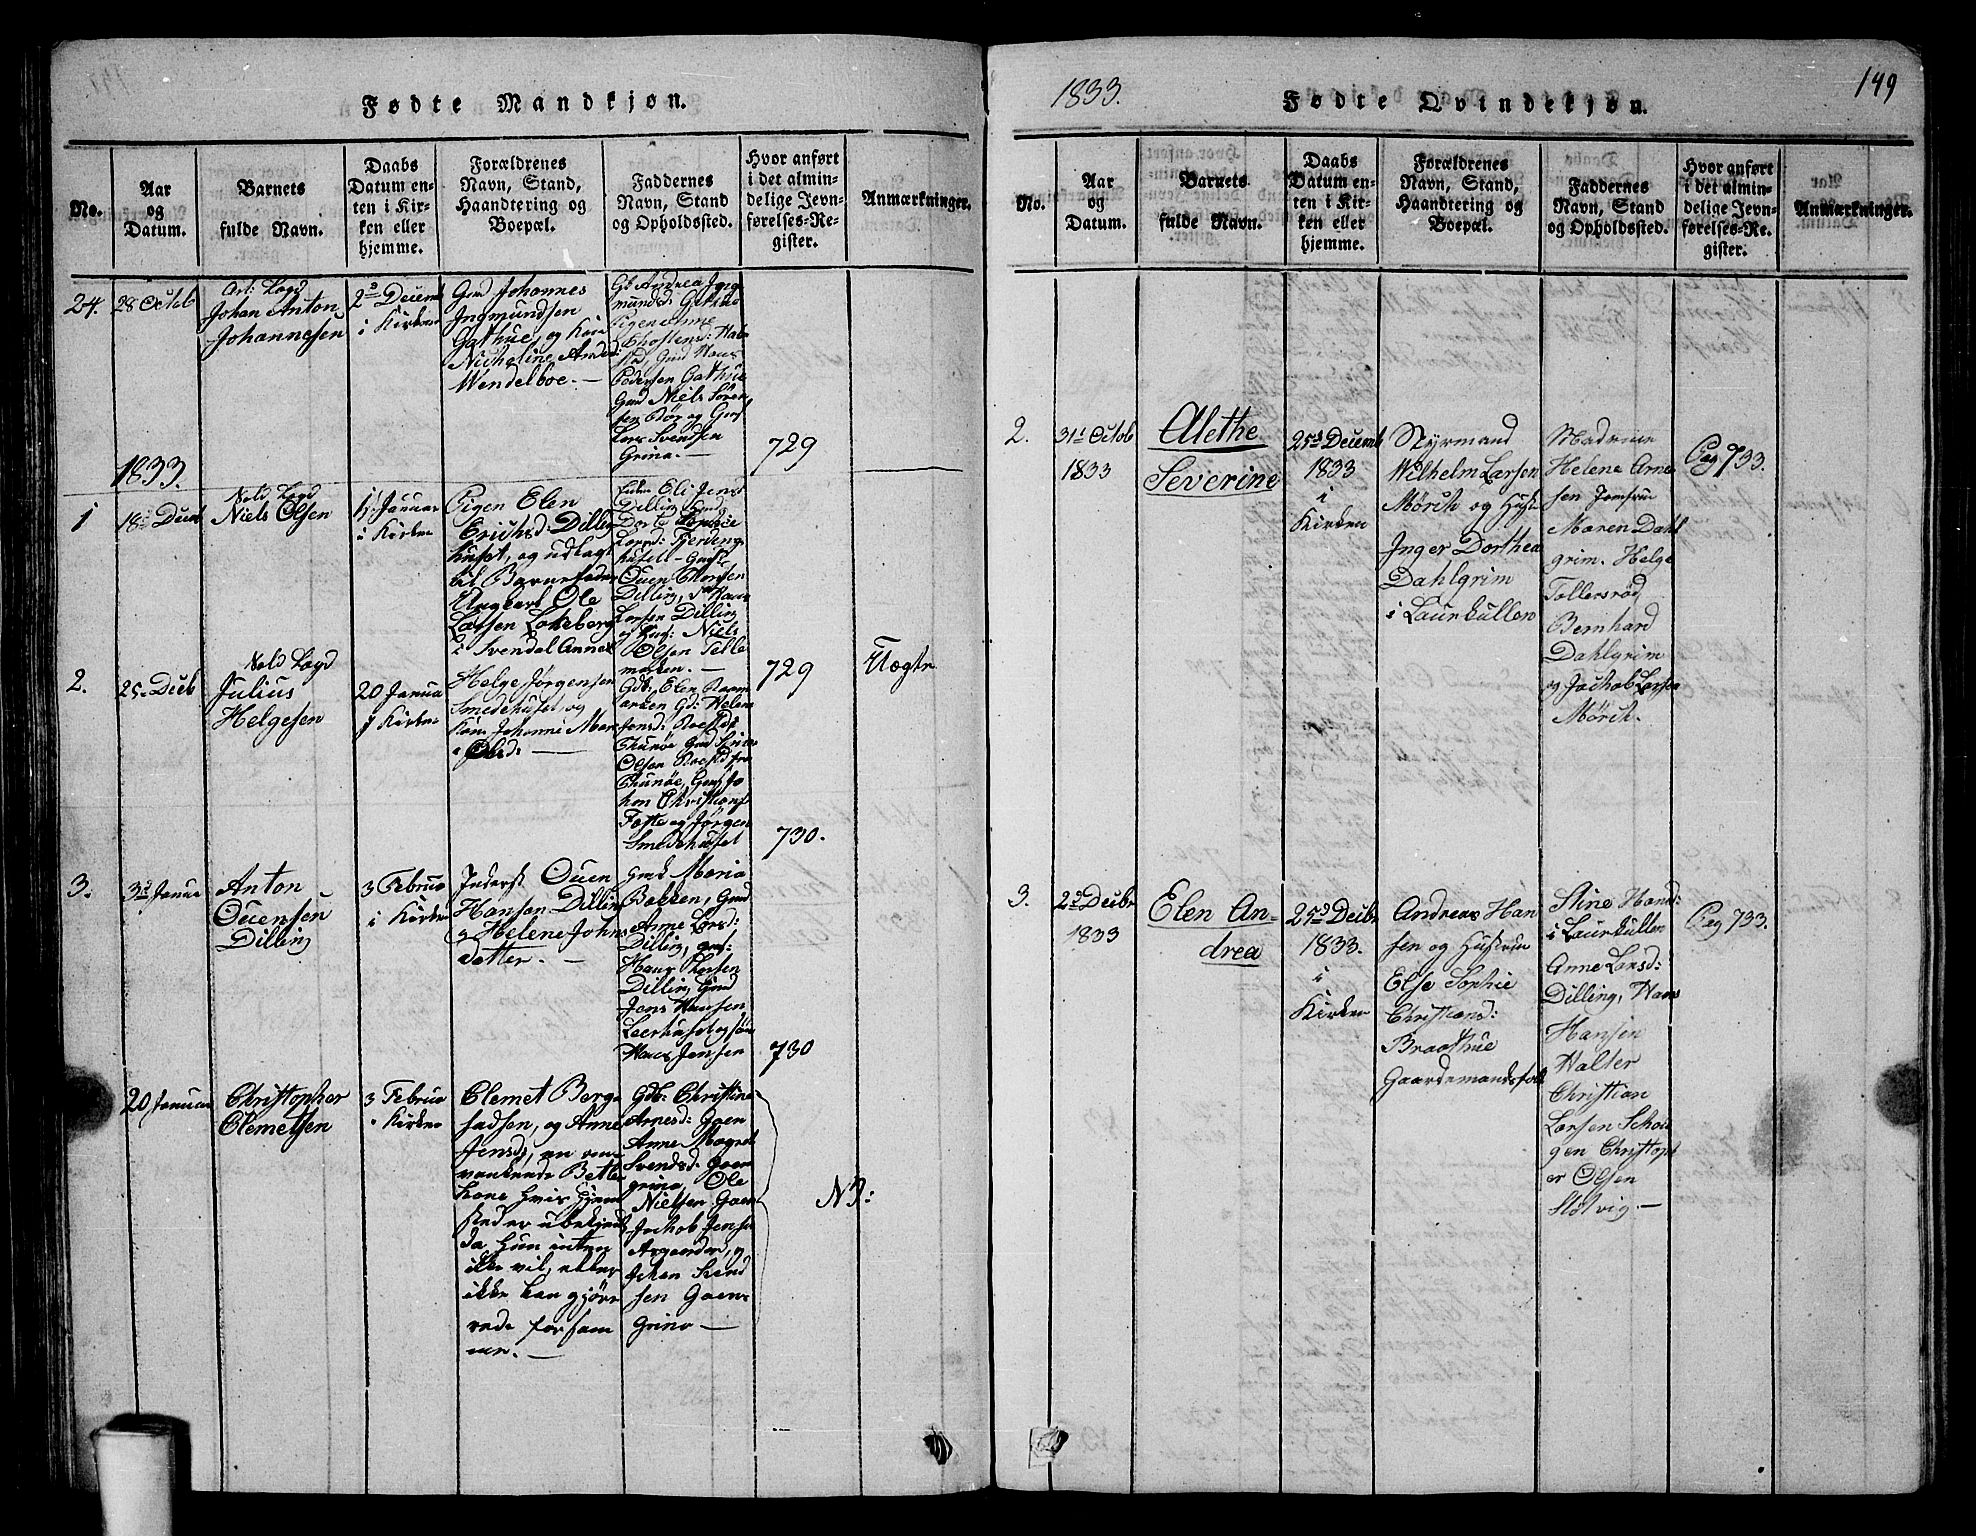 Fødte Mandkjøn.
No.
Aar
og
Datum.
Barnets
fulde Navn.
Daabs
Datum en-
ten i Kir-
ken eller
hjemme.
Forældrenes
Navn, Stand,
Haandtering og
Boepæl.
Faddernes
Navn, Stand
og Opholdssted.
Hvor anført
i det almin-
delige Jevn-
førelses-Re-
gister.
Anmærkninger.
24.
28 Octob
Johan Anton
Johannesen
2d Decemb
i Kirken
Gmd Johannes
Ingmundsen
Gathue, og Kone
Nicheline Andr:
Wendelboe. —
Gb Andrea Ing
munds: Gathue
Pigen Anne
Pedersen Gathue
Gmd Niels Sören
sen Bör og Gmd
Lars Svendsen
Grina. —
729
1833.
1
18d Decemb
Niels Olsen
1d Januar
i Kirken
Pigen Elen
Erichsd: Dilling
huset, og udlagt
til Barnefader
Ungkarl Ole
Larsen Lokeberg
i Svendal Annex
Dilling
Ouen Thorsen
Dilling, Hans
Larsen Dilling
og Niels
Olsen Telle
marken. —
729
Uægte
2.
25 Decb
Julius
Helgesen
20 Janua
i Kirken
Helge Jörgensen
Smedehuset, og
Kone Johanne Mari
e Olsd: —
Gdk, Elen Raam
Olsen
Thunöe, Gmd Jo
han Christians
Tofte og Jörgen
Smedehuset
730.
3.
3d Janua
Anton
Ouensen
Dilling
3 Februa
i Kirken
Inderst Ouen
Hansen Dilling
og Helene Johns
datter. —
Gmk Maria
Bakken, Gmd
Anne Larsd:
Dilling,
Hans Thorsen
Dilling Gmd
Jens Hansen
Leerhuset og sön
Hans Jensen
730
20 Januar
Christopher
Clemetsen
3 Februa
i Kirken
Clemet Berg
sadsen, og Anne
Jensd:, en om
vankende Betler
Kone hvis Hjem
steder ubekjendt
da hun enten
ikke vil, eller
ikke kan gjöre
rede for sam
me. —
Gdk: Christine
Arnesd: Goen
Anne Magret
Svendsd: Goen
grina, Ole
Nielsen Goen
Jachob Jensen
Johan Svend
sen Goen-
Grina —
NB:
1833.
Fødte Qvindekjøn.
149
No.
Aar
og
Datum.
Barnets
fulde Navn.
Daabs
Datum en-
ten i Kir-
ken eller
hjemme.
Forældrenes
Navn, Stand,
Haandtering og
Boepæl.
Faddernes
Navn, Stand
og Opholdssted.
Hvor anført
i det almin-
delige Jevn-
førelses-Re-
gister.
Anmærkninger.
2.
31d Octob
1833
Alethe
Severine
25d Decemb
1833
i
Kirken
Styrmand
Wilhelm Larsen
Mörch og Hust:
Inger Dorthea
Dahlgrim
i Laurkullen
Madame
Helene Arne
sen Jomfrue
Maren Dahl
grim. Helge
Tollersröd
Bernhard
Dahlgrim
og Jachob Larsen
Mörch.
Pag 733.
3.
2d Decbr
1833
Elen An-
drea
25d Decbr
1833.
i
Kirken
Andreas Han
sen og Hustrue
Else Sophie
Christiansd:
Braathue
Gaardemandsfolk
Stine Hansd:
i Laurkullen
Anne Larsd:
Dilling, Hans
Hansen
Walter
Christian
Larsen Schou
gen Christoph
er Olsen
Stölvig. —
Pag 733.